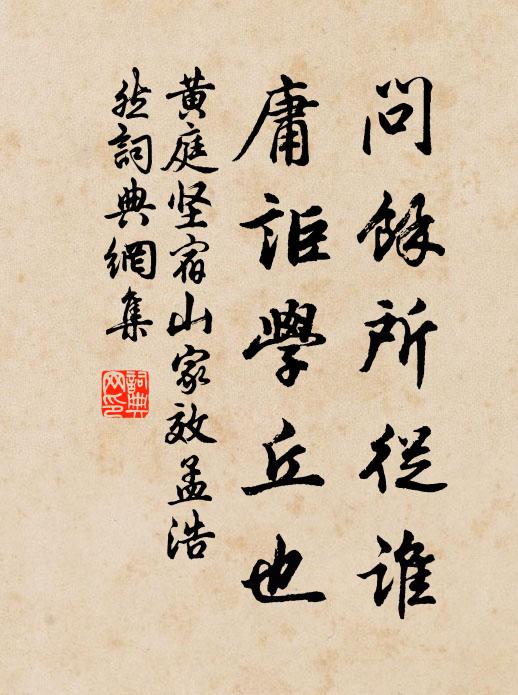 問餘所從誰
庸詎學丘也
黄庭坚宿山家效孟浩
然詞典網集
詞典
网印